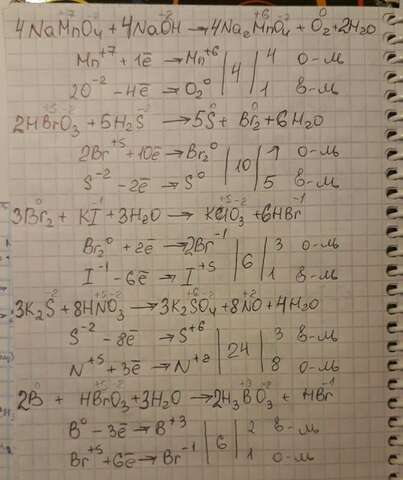 +7 -2 -2 +6 -2 0
4NaMnO₄ + 4NaOH → 4Na₂MnO₄ + O₂ + 2H₂O
Mn⁺⁷ + 1ē → Mn⁺⁶ | 4 | 4 о-ль
2O⁻² − 4ē → O₂⁰ | | 1 в-ль
+5 -2 -2 0 0
2HBrO₃ + 5H₂S → 5S + Br₂ + 6H₂O
2Br⁺⁵ + 10ē → Br₂⁰ | 10 | 1 о-ль
S⁻² − 2ē → S⁰ | | 5 в-ль
0 -1 +5 -2 -1
3Br₂ + KI + 3H₂O → KIO₃ + 6HBr
Br₂⁰ + 2ē → 2Br⁻¹ | 6 | 3 о-ль
I⁻¹ − 6ē → I⁺⁵ | | 1 в-ль
-2 +5 -2 +6 -2 +2
3K₂S + 8HNO₃ → 3K₂SO₄ + 8NO + 4H₂O
S⁻² − 8ē → S⁺⁶ | 24 | 3 в-ль
N⁺⁵ + 3ē → N⁺² | | 8 о-ль
0 +5 -2 +3 -2 -1
2B + HBrO₃ + 3H₂O → 2H₃BO₃ + HBr
B⁰ − 3ē → B⁺³ | 6 | 2 в-ль
Br⁺⁵ + 6ē → Br⁻¹ | | 1 о-ль